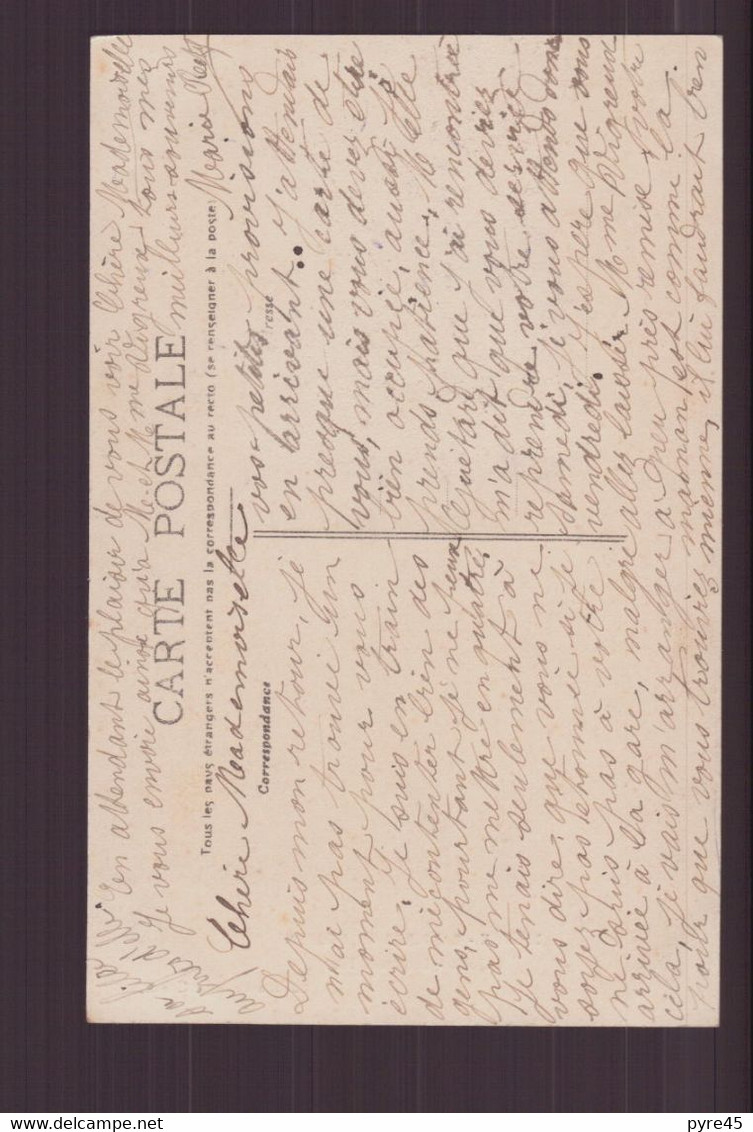 CARTE POSTALE
Tous les pays étrangers n'acceptent pas la correspondance au recto (se renseigner à la poste)
Correspondance
resse
Chère Mademoiselle
Depuis mon retour, je
n'ai pas trouvé un
moment pour vous
écrire, je suis en train
de mécontenter bien des
gens, pourtant je ne peux
pas me mettre en quatre,
je tenais seulement à
vous dire, que vous ne
soyez pas étonnée si je
ne suis pas à votre
arrivée à la gare, malgré
cela, je vais m'arranger à peu près
pour que vous trouviez maman
vos petites provisions
en arrivant. J'attendais
presque une carte de
vous, mais vous devez être
bien occupée, aussi je
prends patience, Melle
Guitard que j'ai rencontrée
m'a dit que vous deviez
reprendre votre service
samedi, je vous attends donc
vendredi. J'espère que vous
allez laisser Mme Vigreux
remise, votre
est comme la
mienne, il lui faudrait ben
la fille
auprès d'
En attendant le plaisir de vous voir Chère Mademoiselle
Je vous envoie ainsi qu'à Mr et Mme Vigreux tous mes
meilleurs souvenirs
Marie
pyre45